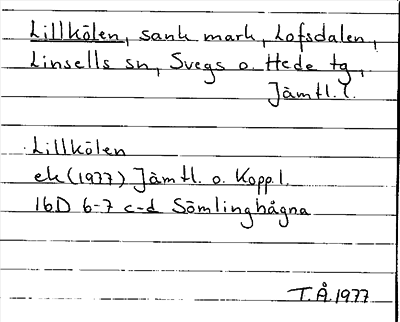 Lillkölen, sank mark, Lofsdalen,
Linsells sn, Svegs o. Hede tg,
Jämtl. l.
Lillkölen
ek (1977) Jämtl. o. Kopp. l.
16D 6-7 c-d Sömlinghågna
T.Å. 1977